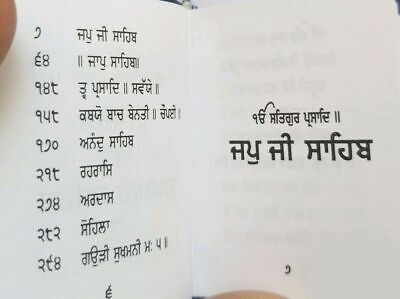 ੭ ਜਪੁ ਜੀ ਸਾਹਿਬ
੬੪ ॥ ਜਾਪੁ ਸਾਹਿਬ॥
੧੪੮ ਤ੍ਵ ਪ੍ਰਸਾਦਿ ॥ ਸਵੱਯੇ ॥
੧੫੮ ਕਬਯੋ ਬਾਚ ਬੇਨਤੀ ॥ ਚੌਪਈ ॥
੧੭੦ ਅਨੰਦੁ ਸਾਹਿਬ
੨੧੮ ਰਹਰਾਸਿ
੨੭੪ ਅਰਦਾਸ
੨੮੨ ਸੋਹਿਲਾ
੨੯੪ ਗਉੜੀ ਸੁਖਮਨੀ ਮਃ ੫ ॥
੬
ੴ ਸਤਿਗੁਰ ਪ੍ਰਸਾਦਿ ॥
ਜਪੁ ਜੀ ਸਾਹਿਬ
੭